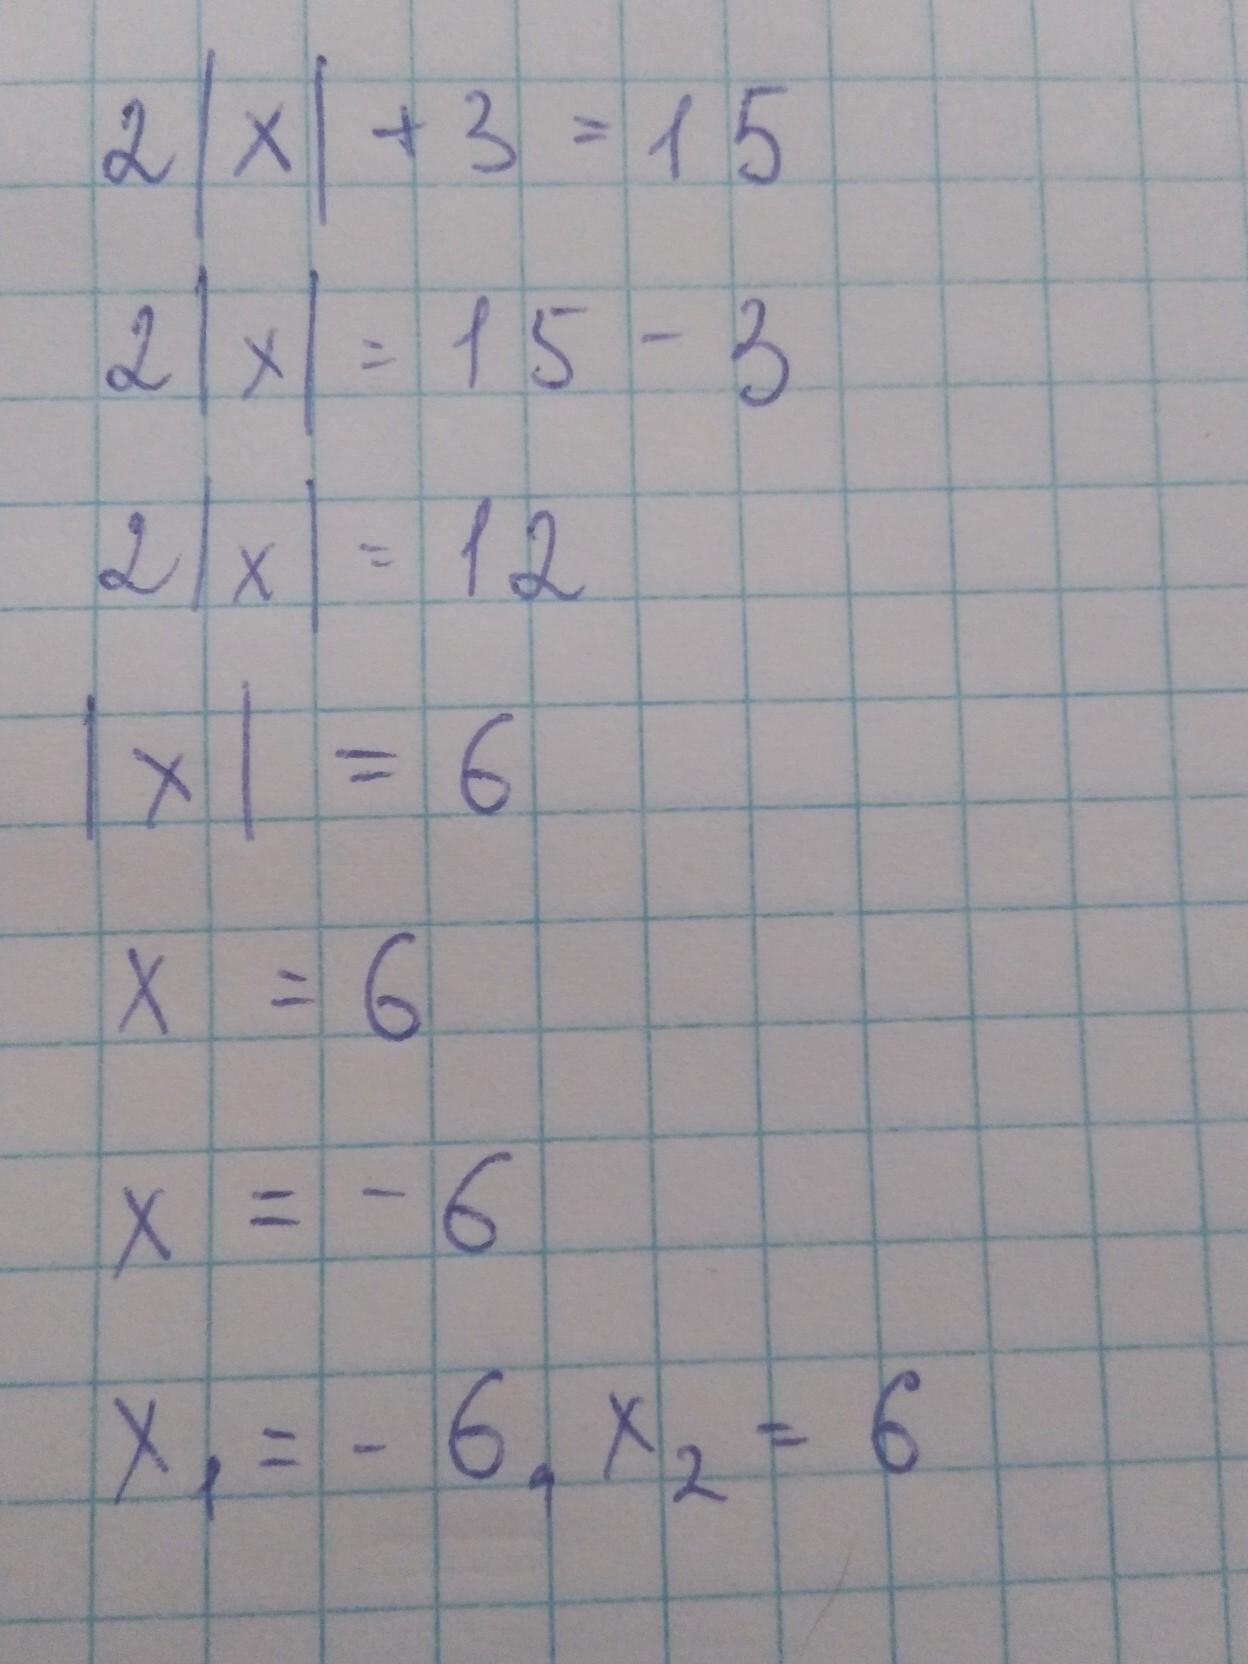 2|x| + 3 = 15
2|x| = 15 - 3
2|x| = 12
|x| = 6
x = 6
x = -6
x₁ = -6, x₂ = 6